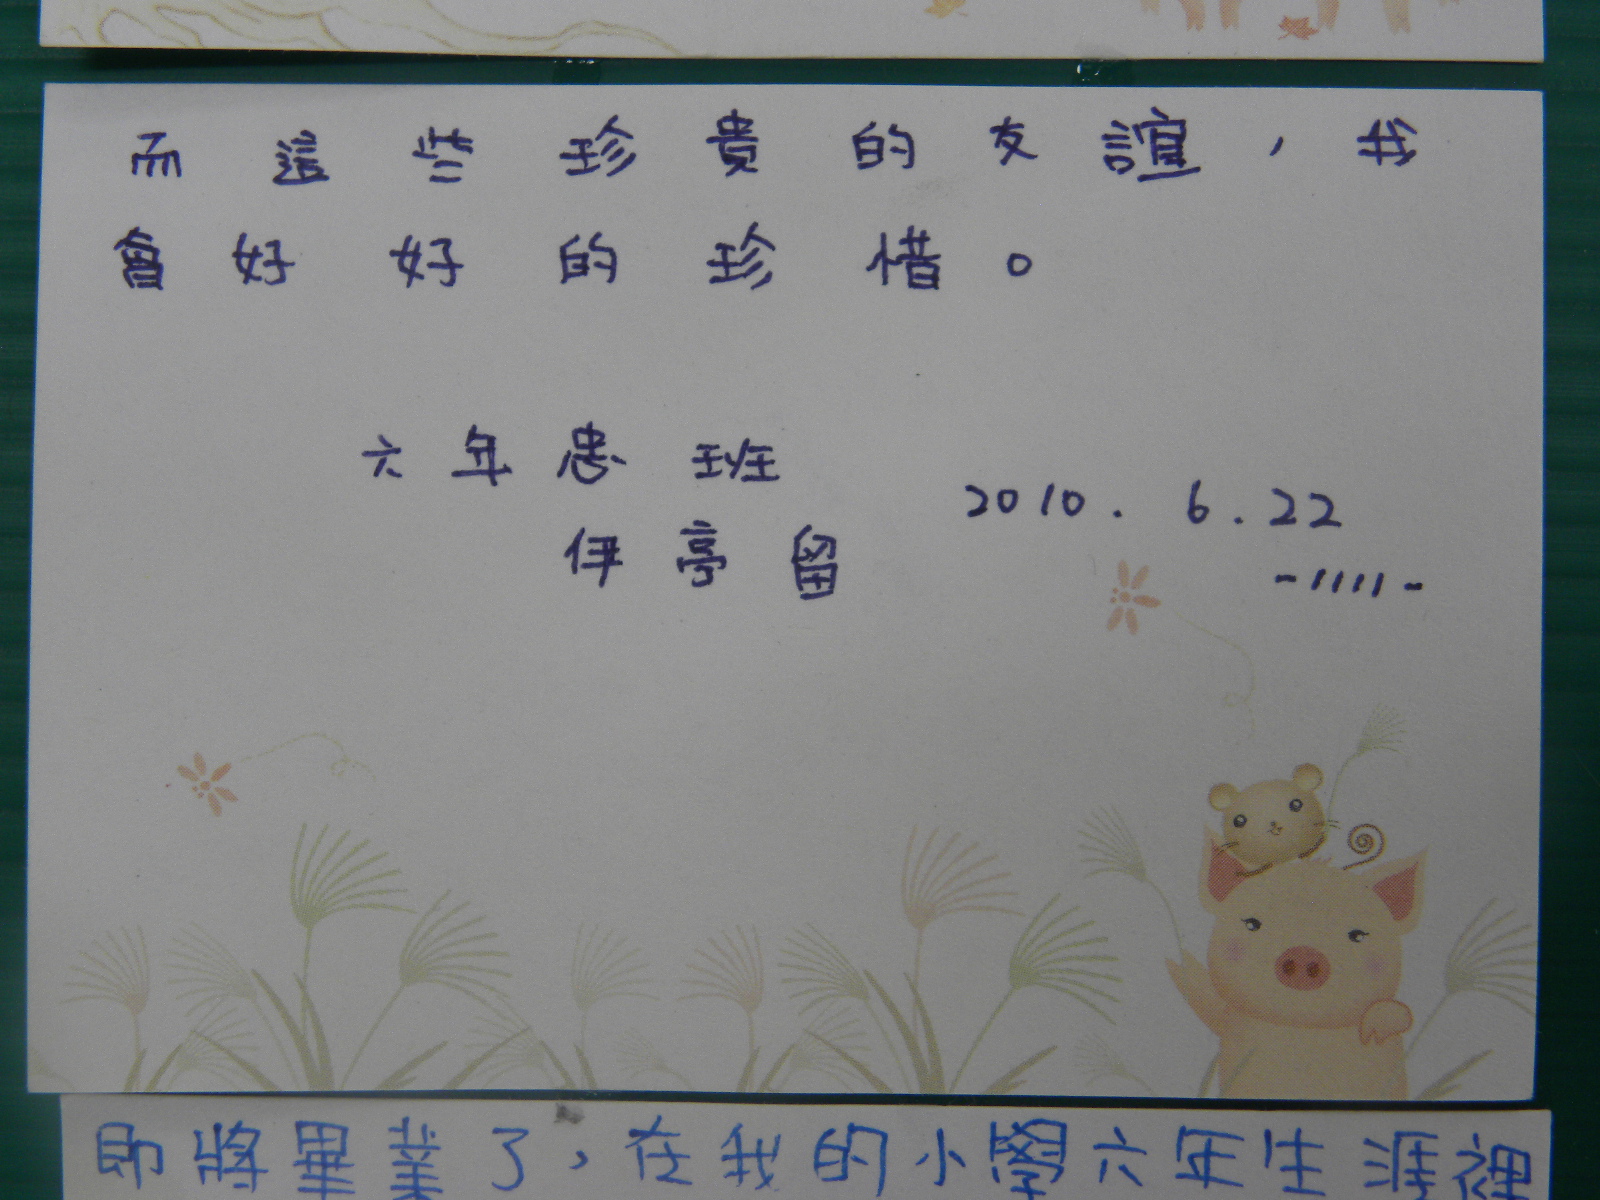 而這些珍貴的友誼，我
會好好的珍惜。
六年忠班
伊亭留
2010.6.22
-1111-
即將畢業了，在我的小學六年生涯裡